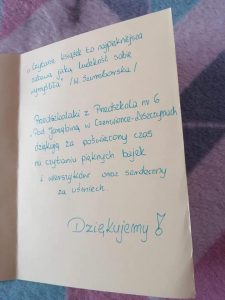 „Czytanie książek to najpiękniejsza
zabawa jaką ludzkość sobie
wymyśliła" /W. Szymborska/
Przedszkolaki z Przedszkola nr 6
„Pod Jarzębiną w Czerwionce-Leszczynach
dziękują za poświęcony czas
na czytaniu pięknych bajek
i wierszyków oraz serdeczny
za uśmiech.
Dziękujemy!